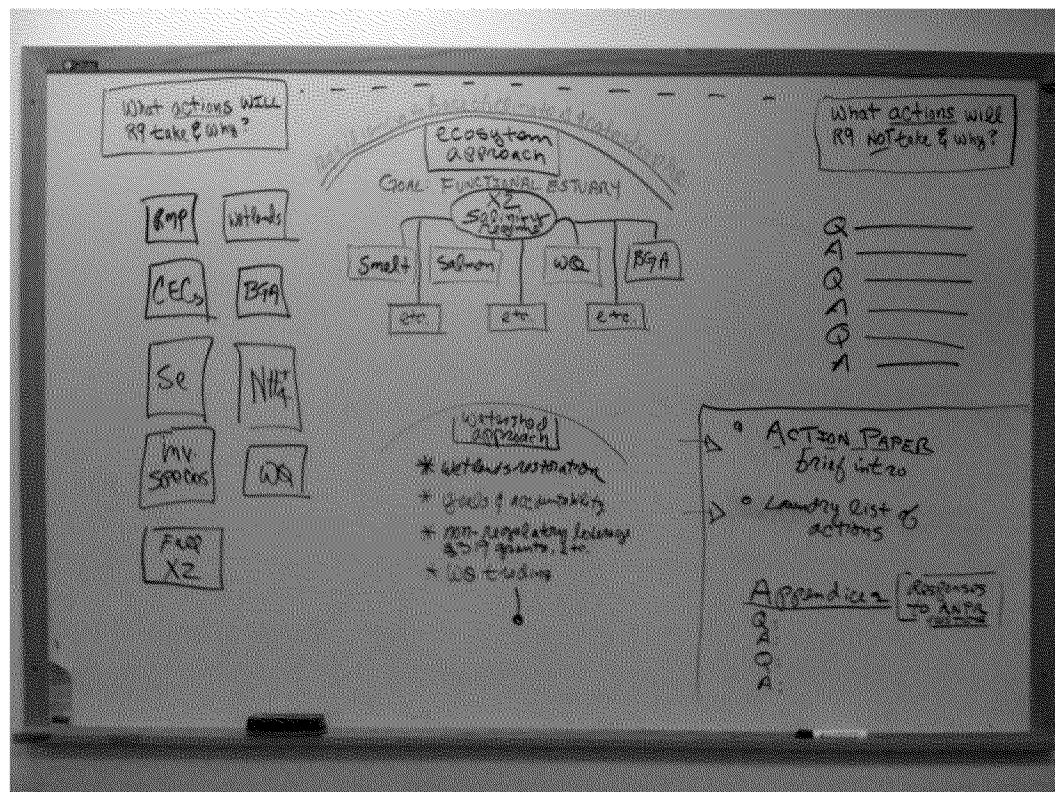 What actions WILL
R9 take & why?
RMP
Wetlands
CECs
BGA
Se
NH4+
Inv.
Species
WQ
Freq
X2
ecosytem
approach
GOAL: FUNCTIONAL ESTUARY
X2
Salinity
Regime
Smelt
Salmon
WQ
BGA
etc.
etc
etc.
Watershed
approach
* Wetlands restoration
* goals & accountability
* non-regulatory leverage
§319 grants, etc.
* WQ trading
What actions will
R9 NOT take & why?
Q
A
Q
A
Q
A
• ACTION PAPER
brief intro
• Laundry list of
actions
Appendices
Responses
to ANPR
Q
A
Q
A.